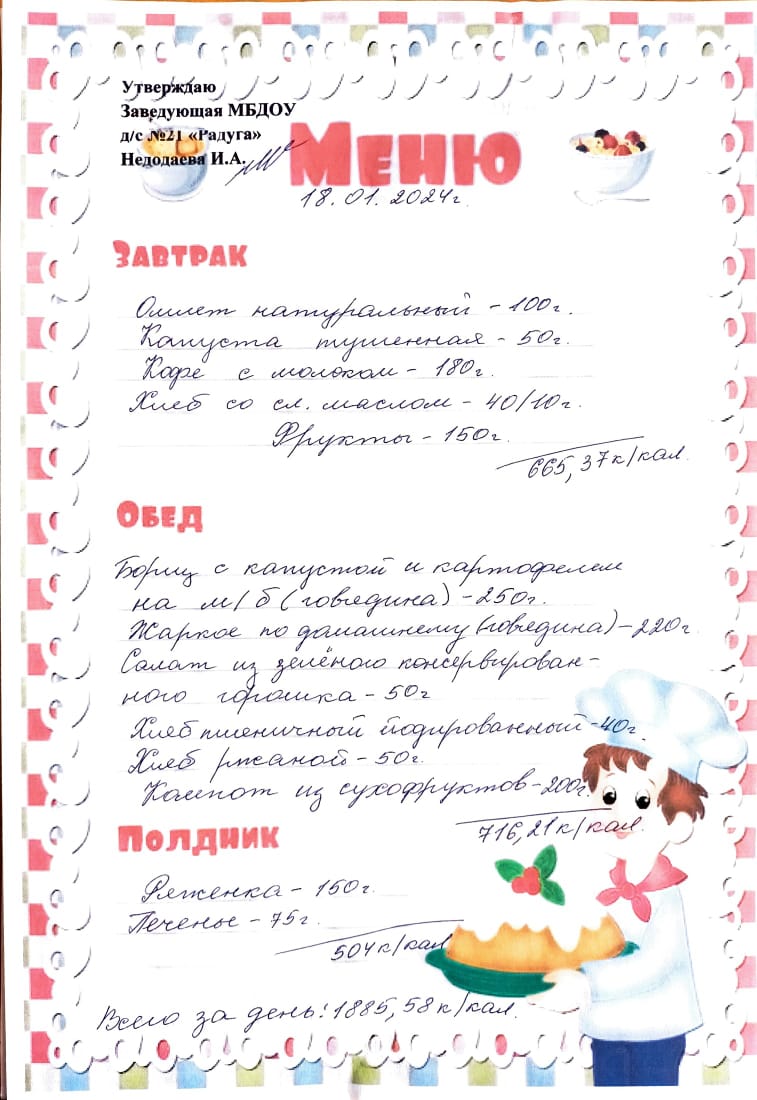 Утверждаю
Заведующая МБДОУ
д/с №21 «Радуга»
Недодаева И.А.
Меню
18.01.2024г.
Завтрак
Омлет натуральный - 100г.
Капуста тушенная - 50г.
Кофе с молоком - 180г.
Хлеб со сл. маслом - 40/10г.
Фрукты - 150г.
665,37к/кал.
Обед
Борщ с капустой и картофелем
на м/б (говядина) - 250г.
Жаркое по домашнему (говядина) - 220г.
Салат из зелёного консервирован-
ного горошка - 50г
Хлеб пшеничный йодированный - 40г.
Хлеб ржаной - 50г.
Компот из сухофруктов - 200г.
716,21к/кал.
Полдник
Ряженка - 150г.
Печенье - 75г.
504к/кал
Всего за день: 1885,58к/кал.